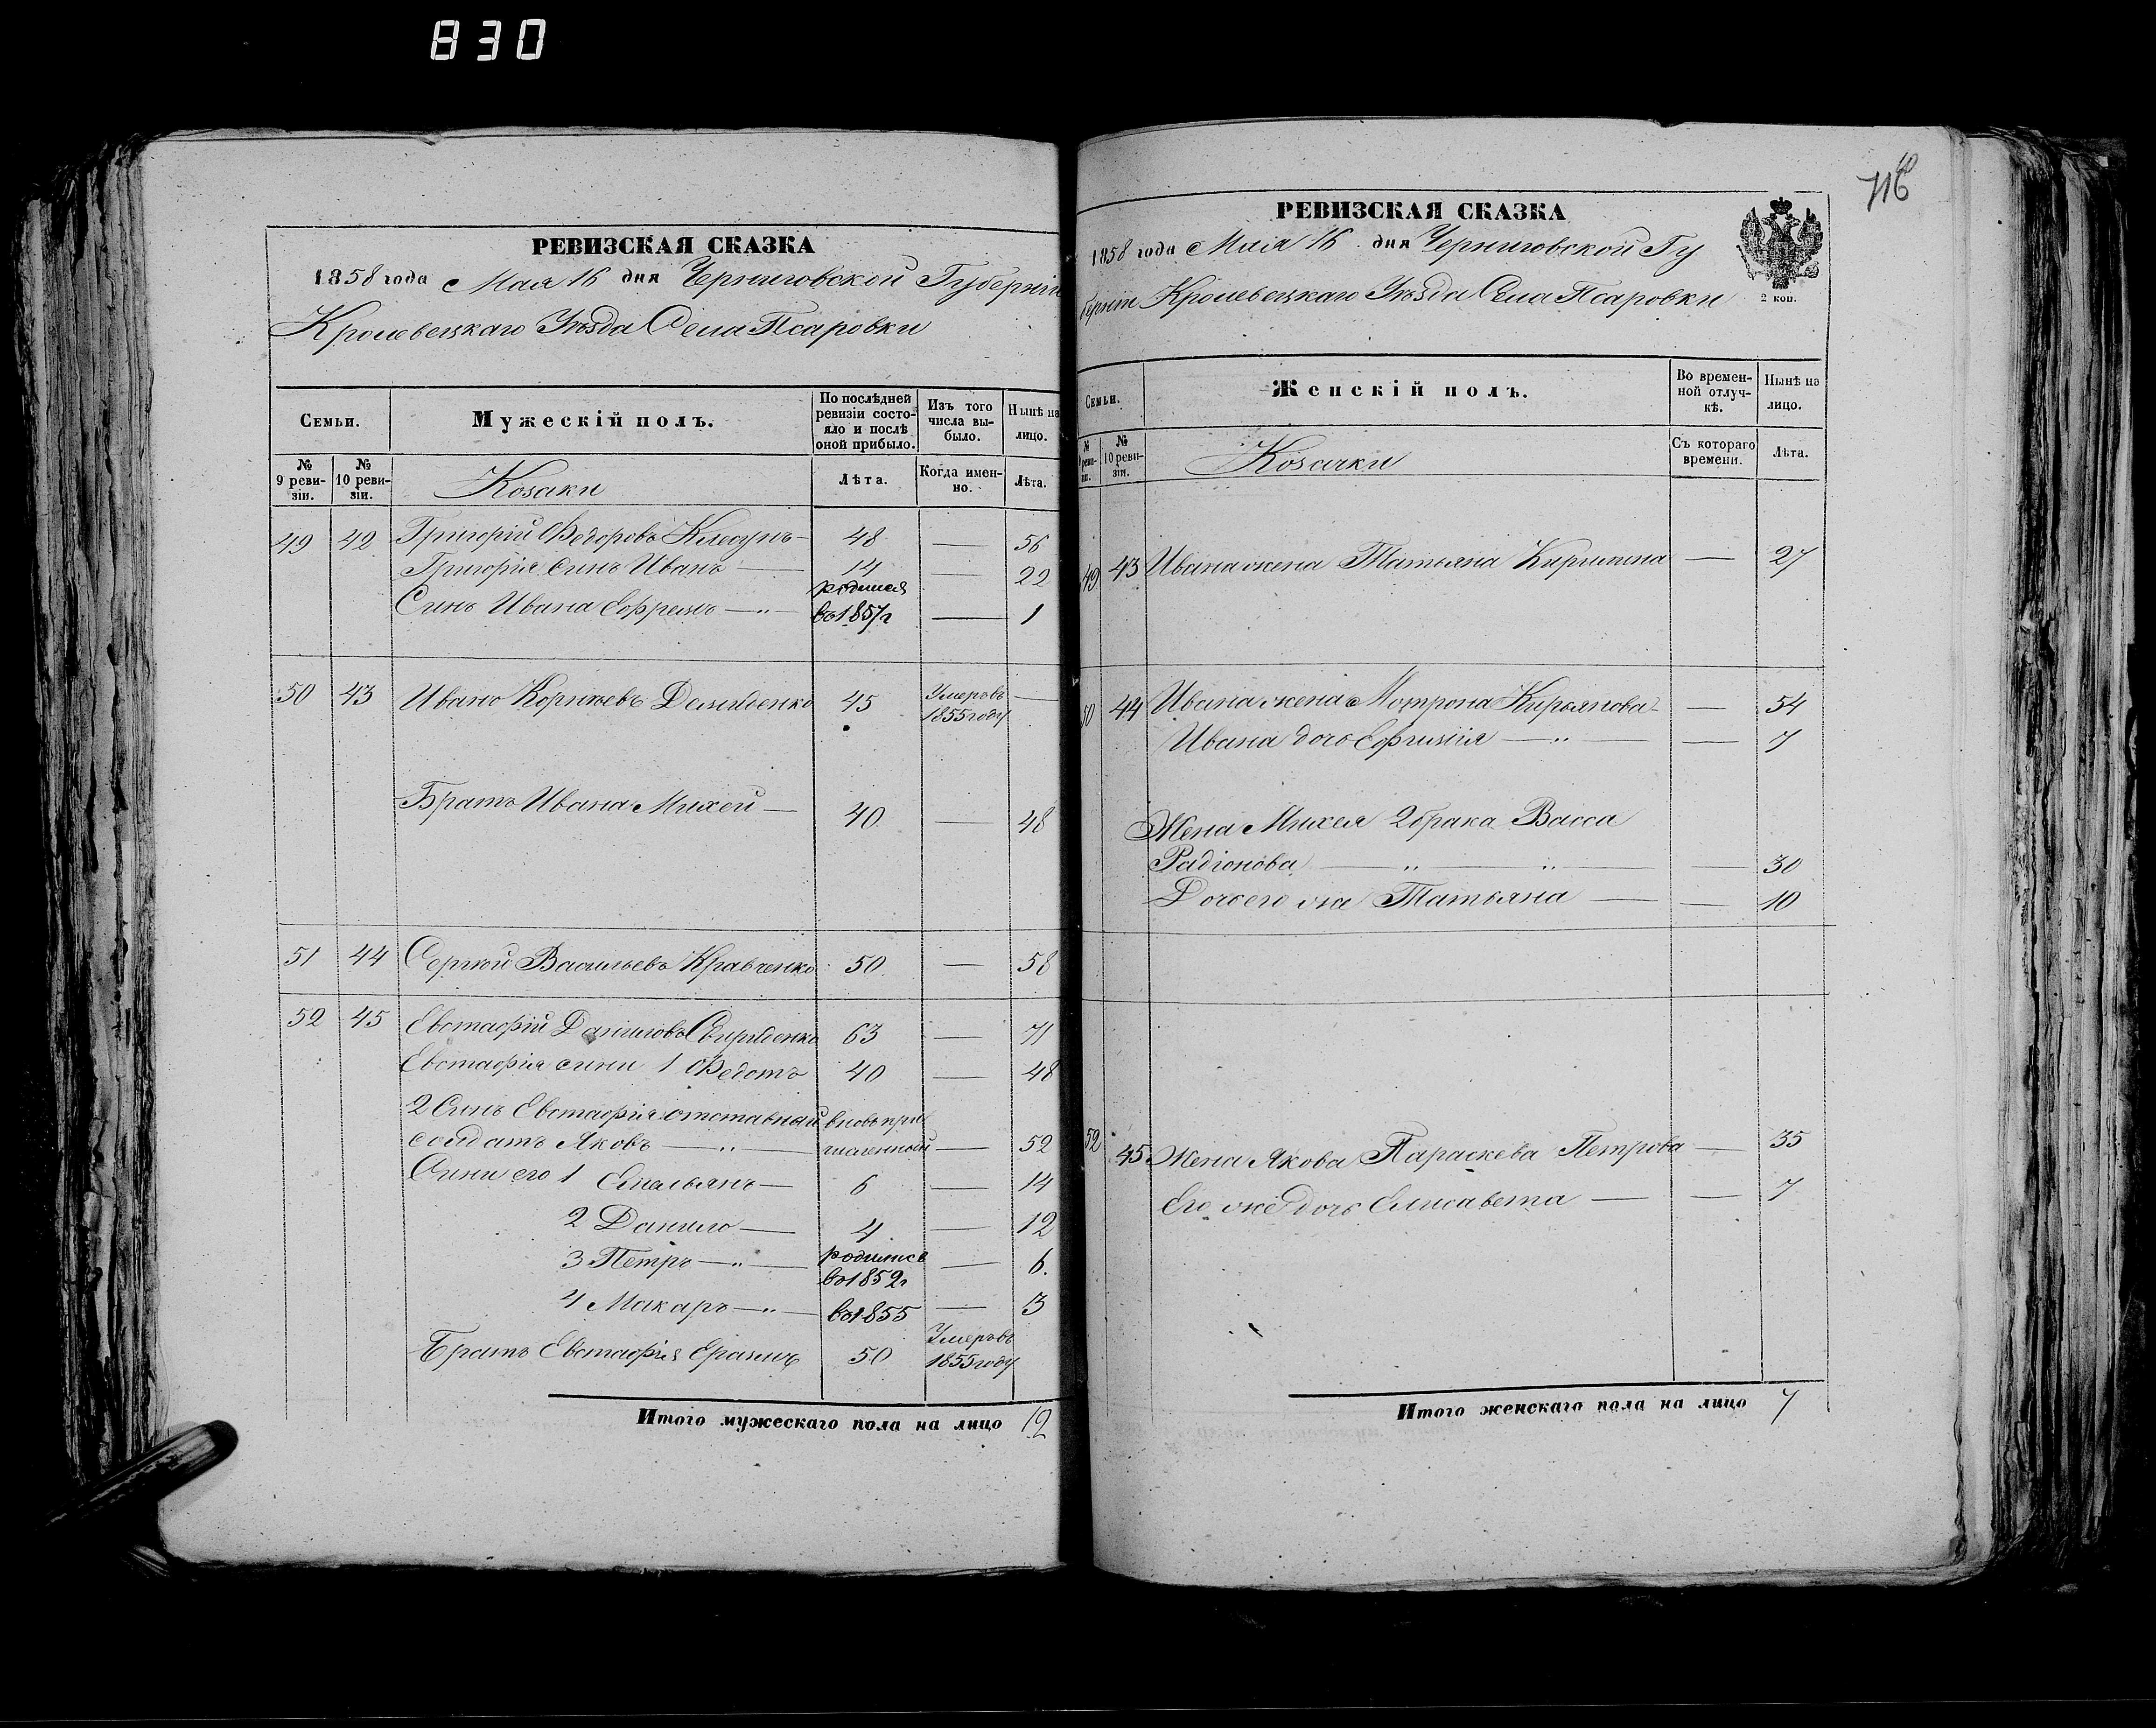 830
РЕВИЗСКАЯ СКАЗКА
1858 года Мая 16 дня Черниговской Губерніи
Кролевецкаго Уѣзда Села Псаровки
Семьи.
Мужескій полъ.
По послѣдней ревизіи состояло и послѣ оной прибыло.
Изъ того числа выбыло.
Нынѣ на лицо.
№ 9 ревизіи.
№ 10 ревизіи.
Козаки
Лѣта.
Когда именно.
Лѣта.
49 42 Григорій Ѳедоровъ 48 — 56
Григорія синъ Иванъ — 14 — 22
Синъ Ивана Ефремъ — „ — родился въ 1857 г — 1
50 43 Иванъ Корнѣевъ Демиденко 45 Умеръ въ 1855 году —
Братъ Ивана Михей — 40 — 48
51 44 Сергѣй Васильевъ Кравченко 50 — 58
52 45 Евстафій Даниловъ Свириденко 63 — 71
Евстафія сини 1 Ѳедотъ 40 — 48
2 Синъ Евстафія отставный вновь при
солдатъ Яковъ — „ — численный — 52
Сини его 1 Емельянъ — 6 — 14
2 Данило — 4 — 12
3 Петръ — „ — родился въ 1852 г — 6.
4 Макаръ — „ — въ 1855 — 3
Братъ Евстафія Еразмъ 50 Умеръ въ 1855 году
Итого мужескаго пола на лицо 12
116
РЕВИЗСКАЯ СКАЗКА
1858 года Маія 16 дня Черниговской Гу
берніи Кролевецкаго Уѣзда Села Псаровки
2 коп.
Семьи.
Женскій полъ.
Во временной отлучкѣ.
Нынѣ на лицо.
№ 9 ревизіи.
№ 10 ревизіи.
Козачки
Съ котораго времени.
Лѣта.
49 43 Ивана жена Татьяна Кирилина — 27
50 44 Ивана жена Мотрона Кирьянова — — 54
Ивана дочь Ефимія — „ — — 7
Жена Михея 2 брака Васса
Радіонова — „ — „ — — 30
Дочь его же Татьяна — — 10
52 45 Жена Якова Параскева Петрова — 35
Его же дочь Елисавета — — 7
Итого женскаго пола на лицо 7